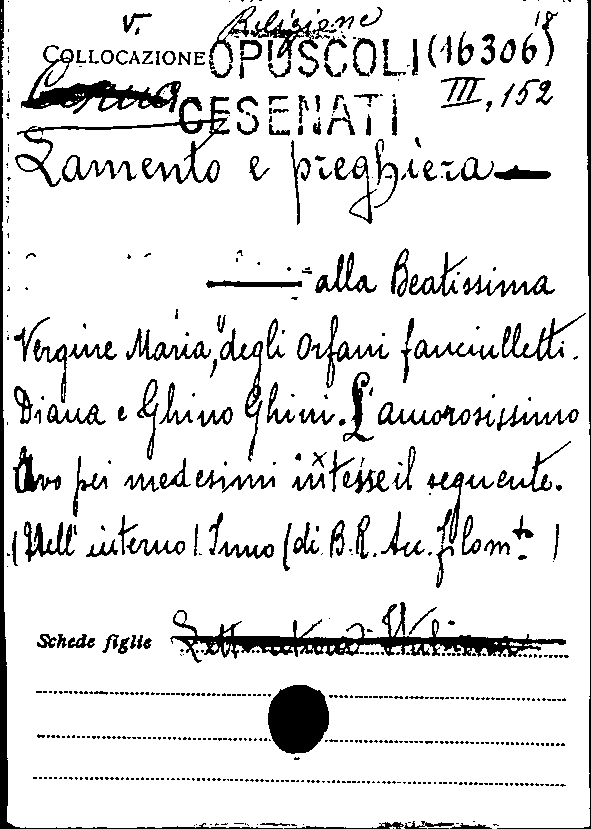 v. Religione 18
COLLOCAZIONE OPUSCOLI (16306)
CESENATI III, 152
Lamento e preghiera
alla Beatissima
Vergine Maria, "degli Orfani fanciulletti.
Diana e Ghino Ghini. L'amorosissimo
Avo pei medesimi intesse il seguente.
(Nell'interno) Inno (di B.R. Acc. filom.to)
Schede figlie Letteratura Italiana